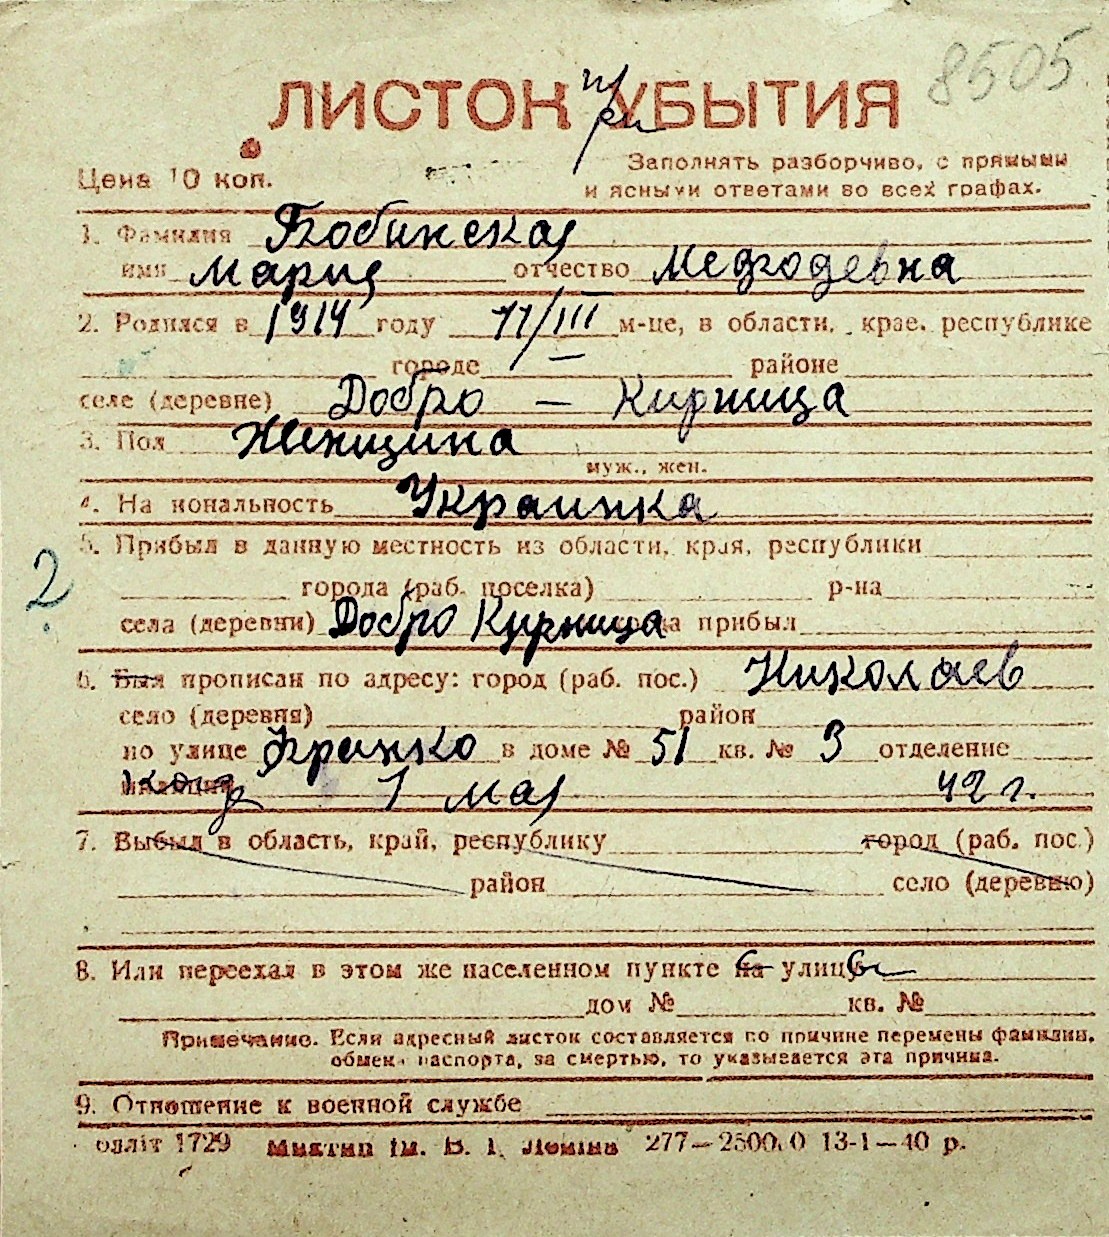 8505
ЛИСТОК при УБЫТИЯ
Цена 10 коп.
Заполнять разборчиво, с прямыми
и ясными ответами во всех графах.
1. Фамилия Бобинская
имя Мария отчество Мефодевна
2. Родился в 1914 году 11/III м-це, в области, крае, республике
городе районе
селе (деревне) Добро — Кирница
3. Пол Женщина
муж., жен.
4. Национальность Украинка
5. Прибыл в данную местность из области, края, республики
города (раб. поселка) р-на
села (деревни) Добро Кирница прибыл
2
6. Был прописан по адресу: город (раб. пос.) Николаев
село (деревня) район
по улице Франко в доме № 51 кв. № 3 отделение
1 мая 42 г.
7. Выбыл в область, край, республику город (раб. пос.)
район село (деревню)
8. Или переехал в этом же населенном пункте с на улицы
дом № кв. №
Примечание. Если адресный листок составляется по причине перемены фамилии,
обмена паспорта, за смертью, то указывается эта причина.
9. Отношение к военной службе
1729 ім. В. І. Леніна 277—2500.0 13-1—40 р.